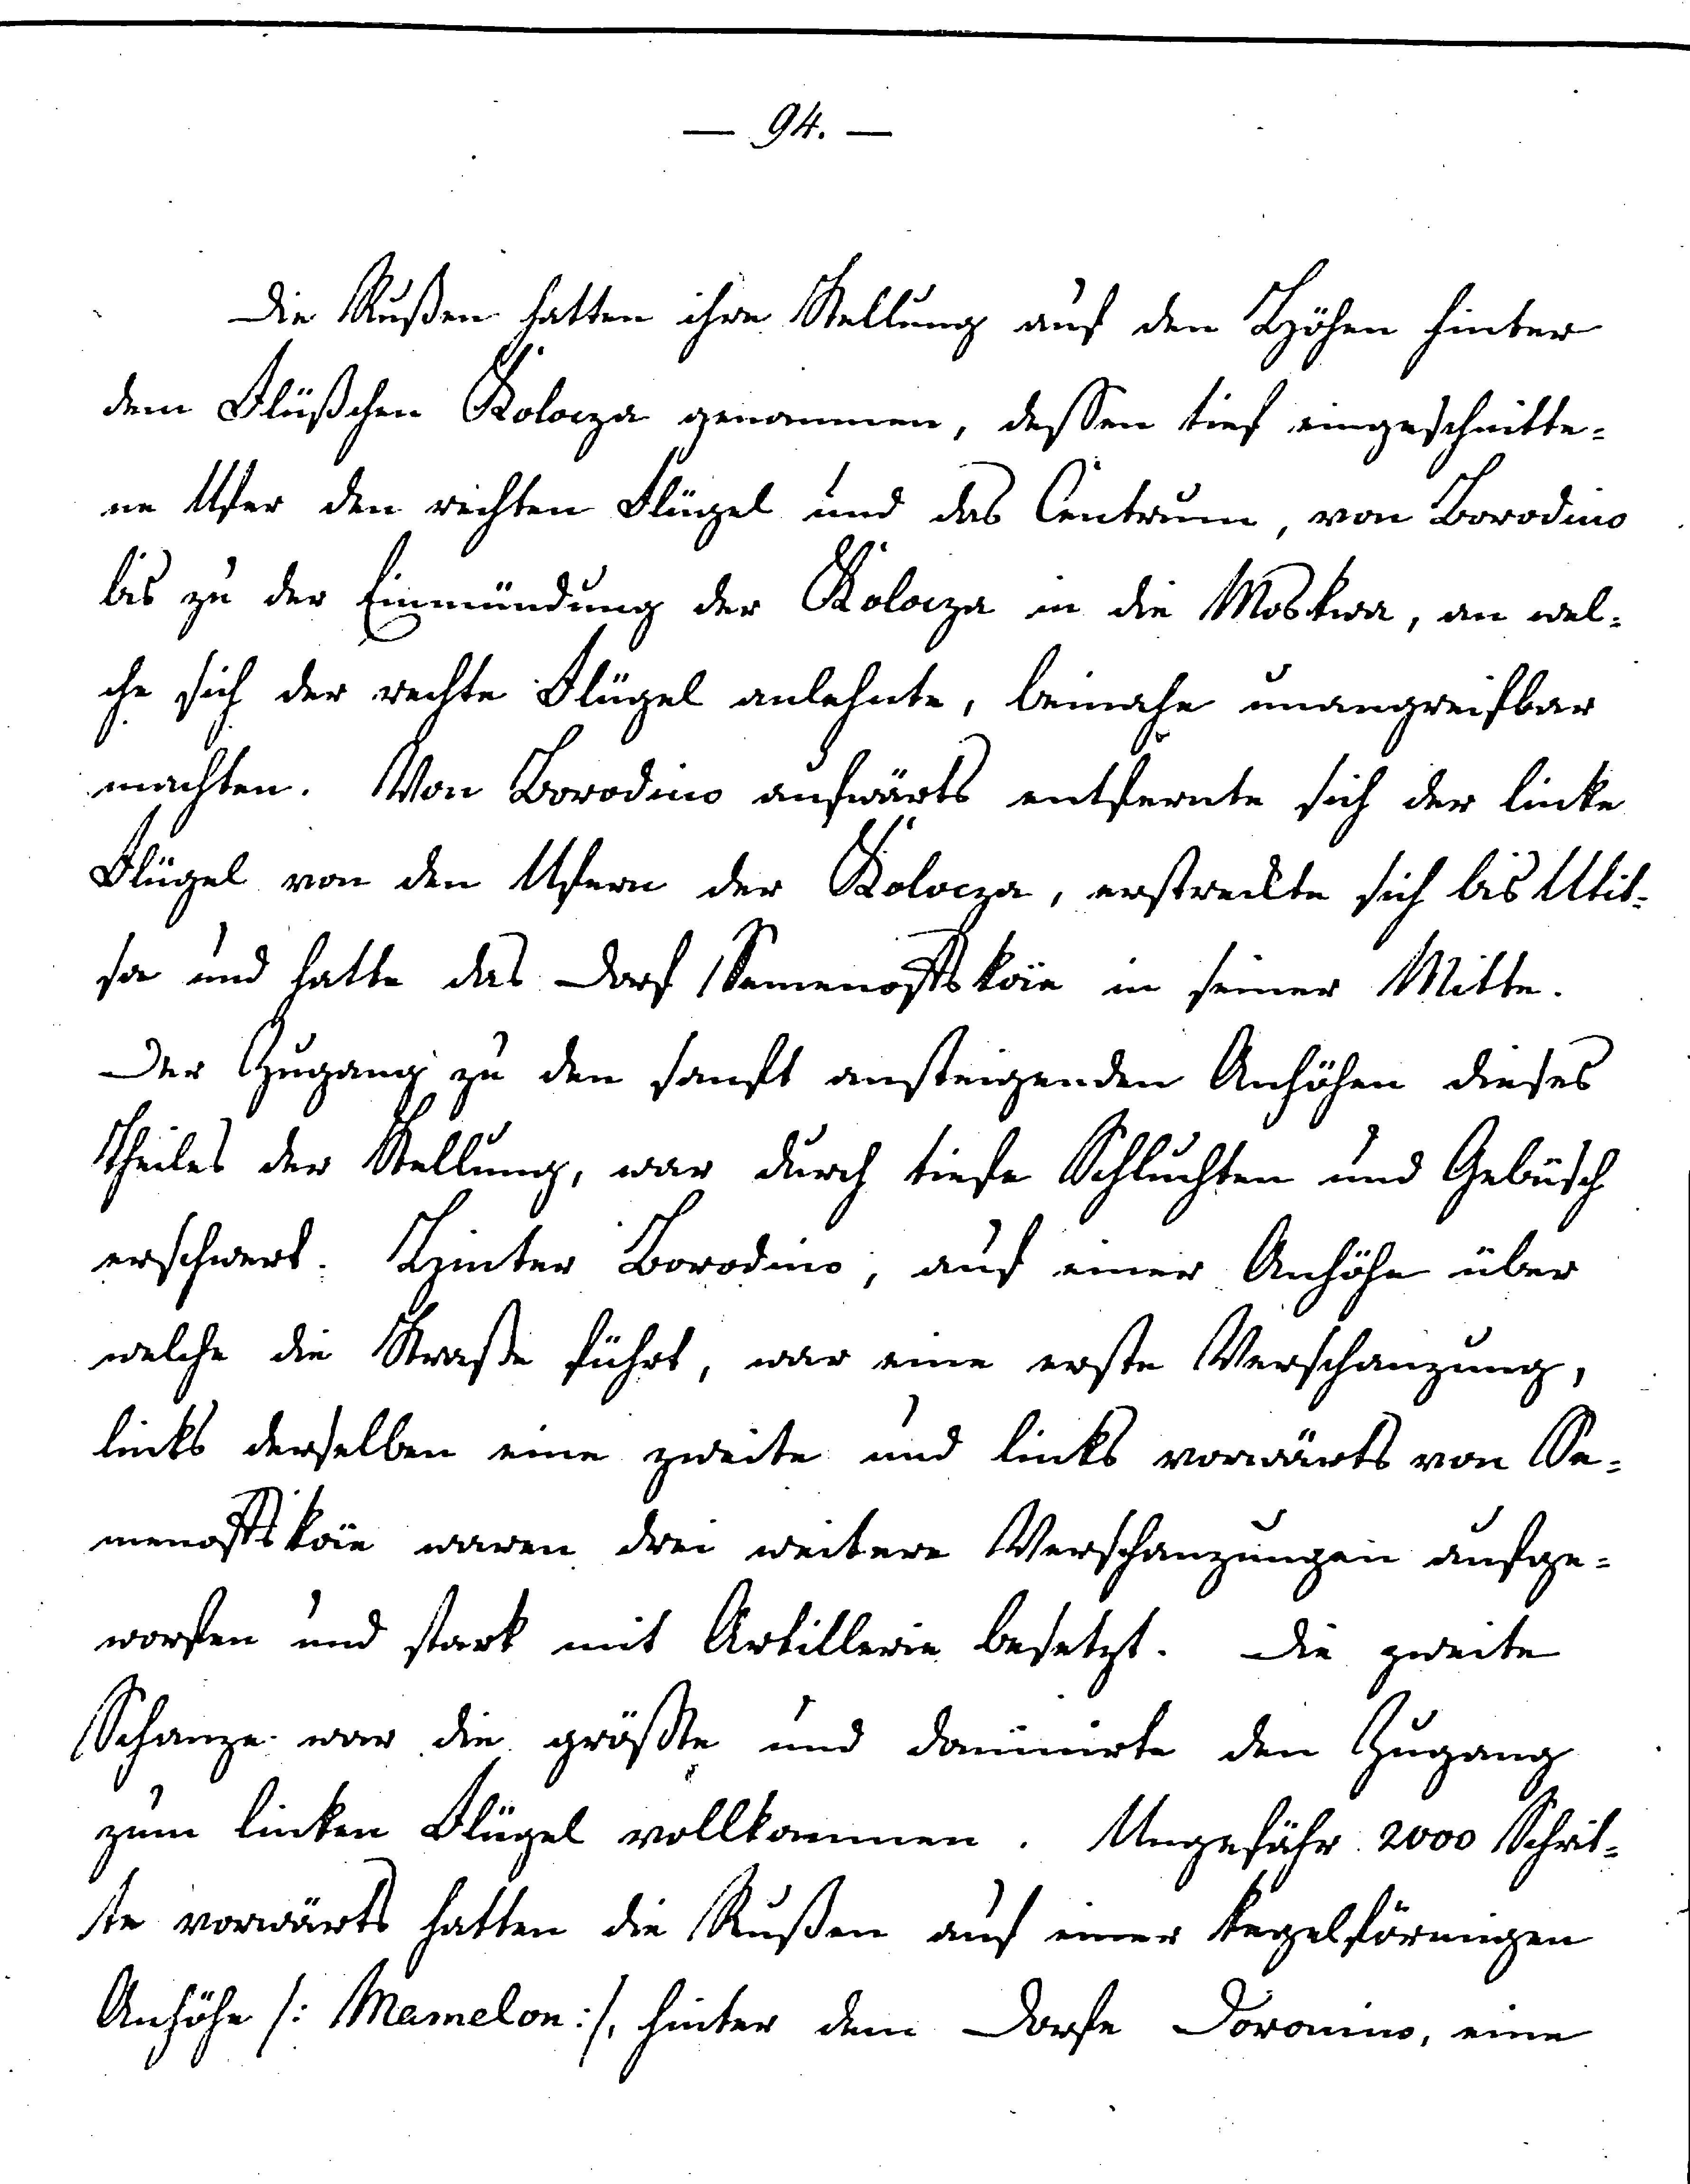 — 94. —
Die Rußen hatten ihre Stellung auf den Höhen hinter
dem Flüßchen Kolocza genommen, dessen tief eingeschnitte-
ne Ufer den rechten Flügel und das Centrum, von Borodino
bis zu der Einmündung der Kolocza in die Moskwa, an wel-
che sich der rechte Flügel anlehnte, beinahe unangreifbar
machten. Von Borodino aufwärts entfernte sich der linke
Flügel von den Ufern der Kolocza, erstreckte sich bis Utit-
sa und hatte das Dorf Semenoffskoie in seiner Mitte.
Der Zugang zu den sanft ansteigenden Anhöhen dieses
Theiles der Stellung, war durch tiefe Schluchten und Gebüsch
erschwert. Hinter Borodino, auf einer Anhöhe über
welche die Straße führt, war eine erste Verschanzung,
links derselben eine zweite und links vorwärts von Se-
menoffskoie waren drei weitere Verschanzungen aufge-
worfen und stark mit Artillerie besetzt. Die zweite
Schanze war die größte und dominirte den Zugang
zum linken Flügel vollkommen. Ungefähr 2000 Schrit-
te vorwärts hatten die Rußen auf einer kegelförmigen
Anhöhe /: Mamelon :/, hinter dem Dorfe Doronino, eine